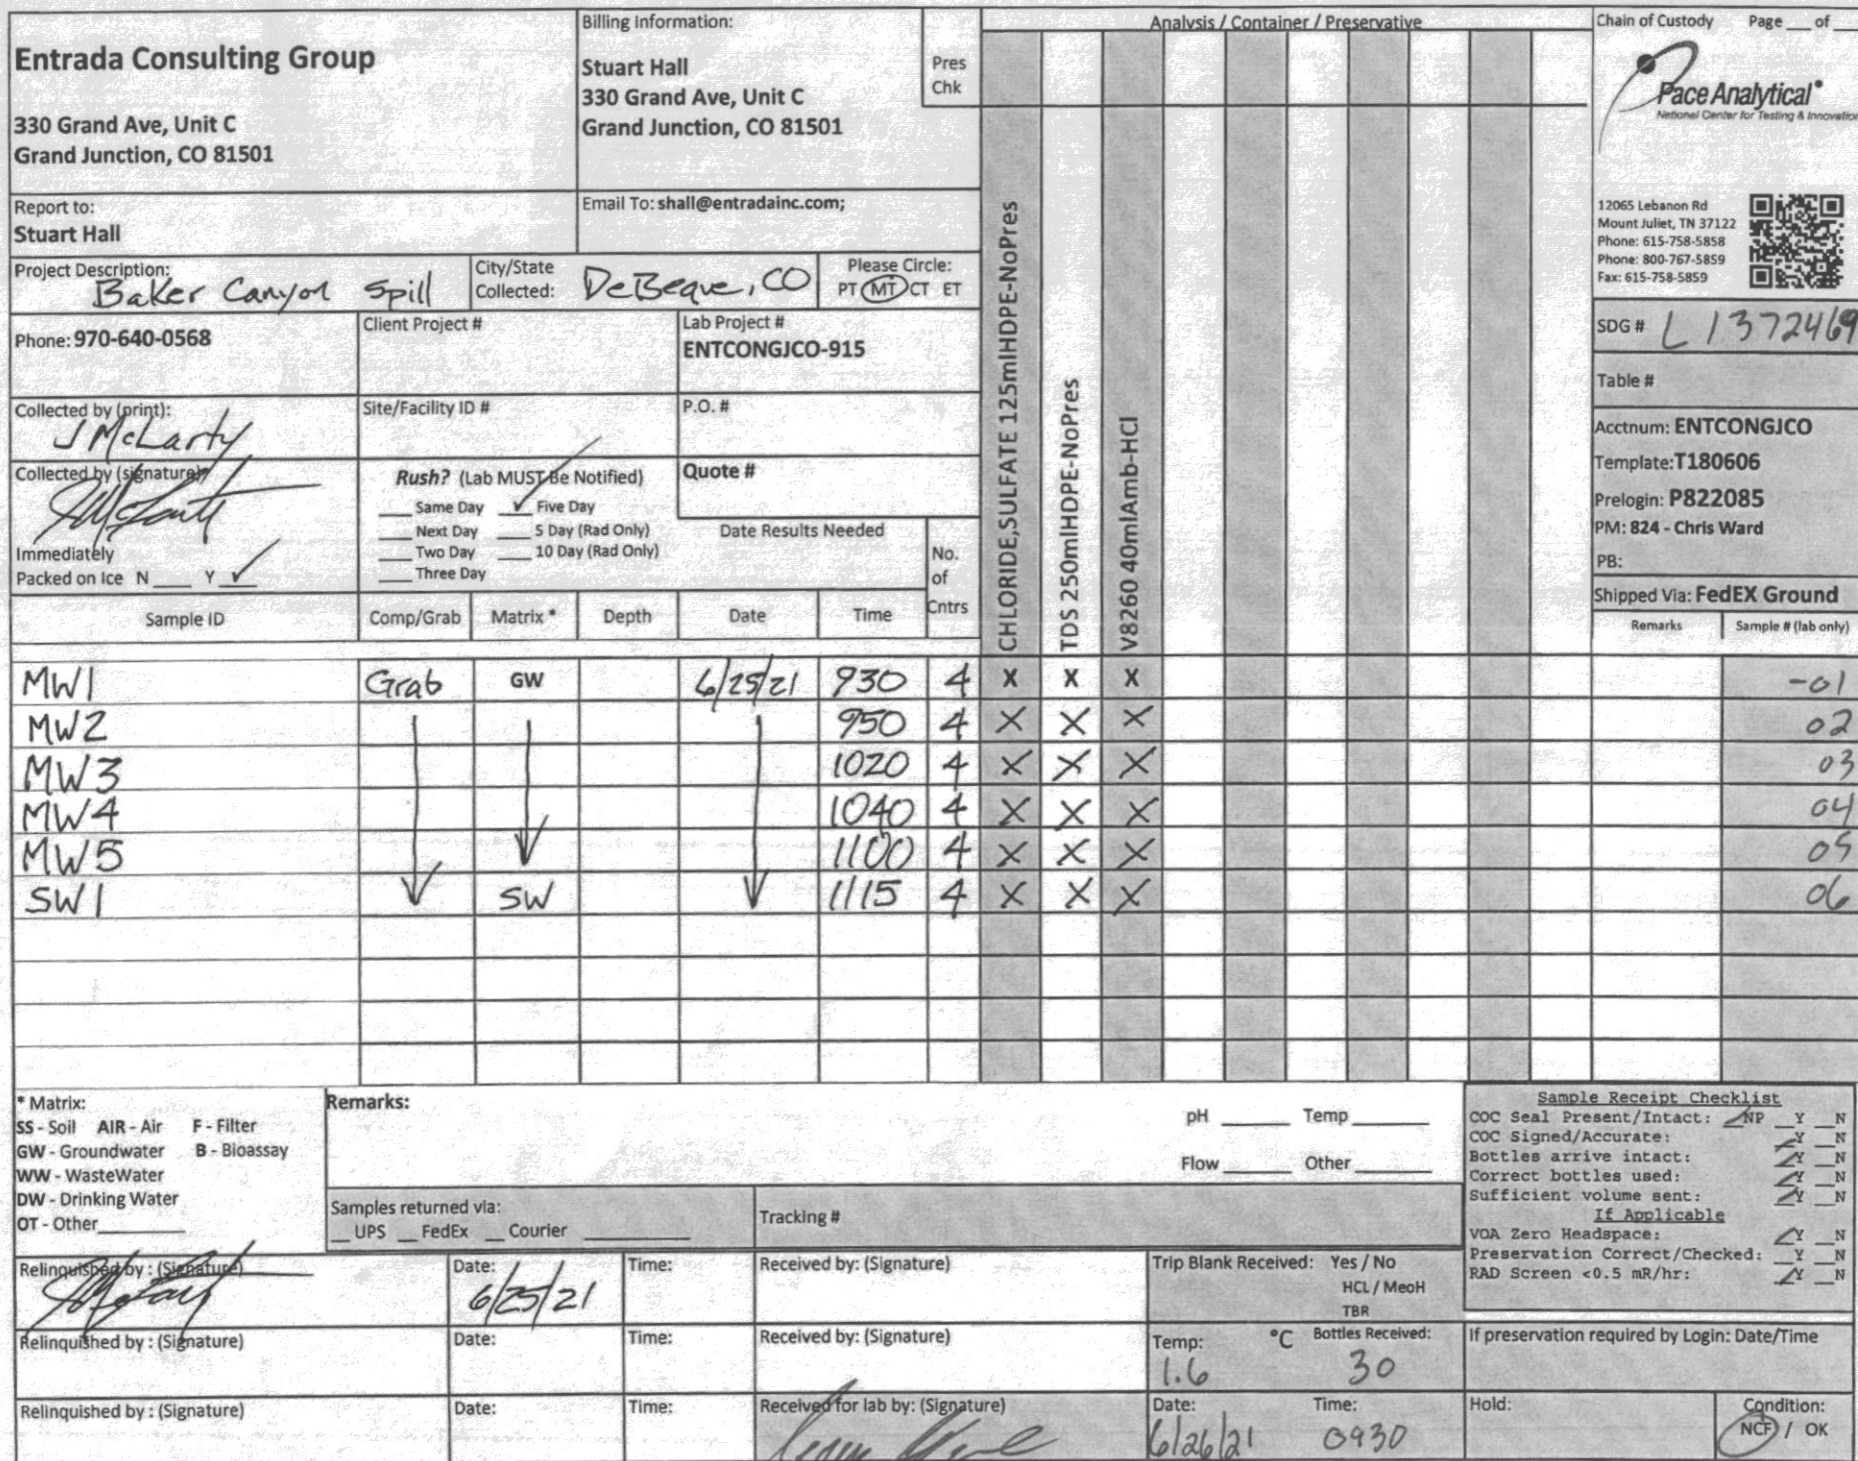 Entrada Consulting Group
330 Grand Ave, Unit C
Grand Junction, CO 81501
Billing Information:
Stuart Hall
330 Grand Ave, Unit C
Grand Junction, CO 81501
Pres
Chk
Analysis / Container / Preservative
Chain of Custody Page ___ of ___
Pace Analytical®
National Center for Testing & Innovation
12065 Lebanon Rd
Mount Juliet, TN 37122
Phone: 615-758-5858
Phone: 800-767-5859
Fax: 615-758-5859
Report to:
Stuart Hall
Email To: shall@entradainc.com;
Project Description:
Baker Canyon Spill
City/State
Collected: DeBeque, CO
Please Circle:
PT MT CT ET
Phone: 970-640-0568
Client Project #
Lab Project #
ENTCONGJCO-915
SDG # L1372469
Table #
Collected by (print):
J McLarty
Site/Facility ID #
P.O. #
Acctnum: ENTCONGJCO
Template: T180606
Prelogin: P822085
PM: 824 - Chris Ward
PB:
Shipped Via: FedEX Ground
Collected by (signature):
Rush? (Lab MUST Be Notified)
___ Same Day ✓ Five Day
___ Next Day ___ 5 Day (Rad Only)
___ Two Day ___ 10 Day (Rad Only)
___ Three Day
Quote #
Date Results Needed
Immediately
Packed on Ice N ___ Y ✓
No.
of
Cntrs
CHLORIDE,SULFATE 125mlHDPE-NoPres
TDS 250mlHDPE-NoPres
V8260 40mlAmb-HCl
Sample ID Comp/Grab Matrix * Depth Date Time Remarks Sample # (lab only)
MW1 Grab GW 6/25/21 930 4 X X X -01
MW2 950 4 X X X 02
MW3 1020 4 X X X 03
MW4 1040 4 X X X 04
MW5 1100 4 X X X 05
SW1 SW 1115 4 X X X 06
* Matrix:
SS - Soil AIR - Air F - Filter
GW - Groundwater B - Bioassay
WW - WasteWater
DW - Drinking Water
OT - Other ___
Remarks:
pH ___ Temp ___
Flow ___ Other ___
Samples returned via:
__ UPS __ FedEx __ Courier ___
Tracking #
Sample Receipt Checklist
COC Seal Present/Intact: ✓NP __Y __N
COC Signed/Accurate: ✓Y __N
Bottles arrive intact: ✓Y __N
Correct bottles used: ✓Y __N
Sufficient volume sent: ✓Y __N
If Applicable
VOA Zero Headspace: ✓Y __N
Preservation Correct/Checked: __Y __N
RAD Screen <0.5 mR/hr: ✓Y __N
Relinquished by : (Signature)
Date:
6/25/21
Time:
Received by: (Signature)
Trip Blank Received: Yes / No
HCL / MeoH
TBR
Relinquished by : (Signature)
Date:
Time:
Received by: (Signature)
Temp: °C
1.6
Bottles Received:
30
If preservation required by Login: Date/Time
Relinquished by : (Signature)
Date:
Time:
Received for lab by: (Signature)
Date:
6/26/21
Time:
0930
Hold:
Condition:
NCF / OK